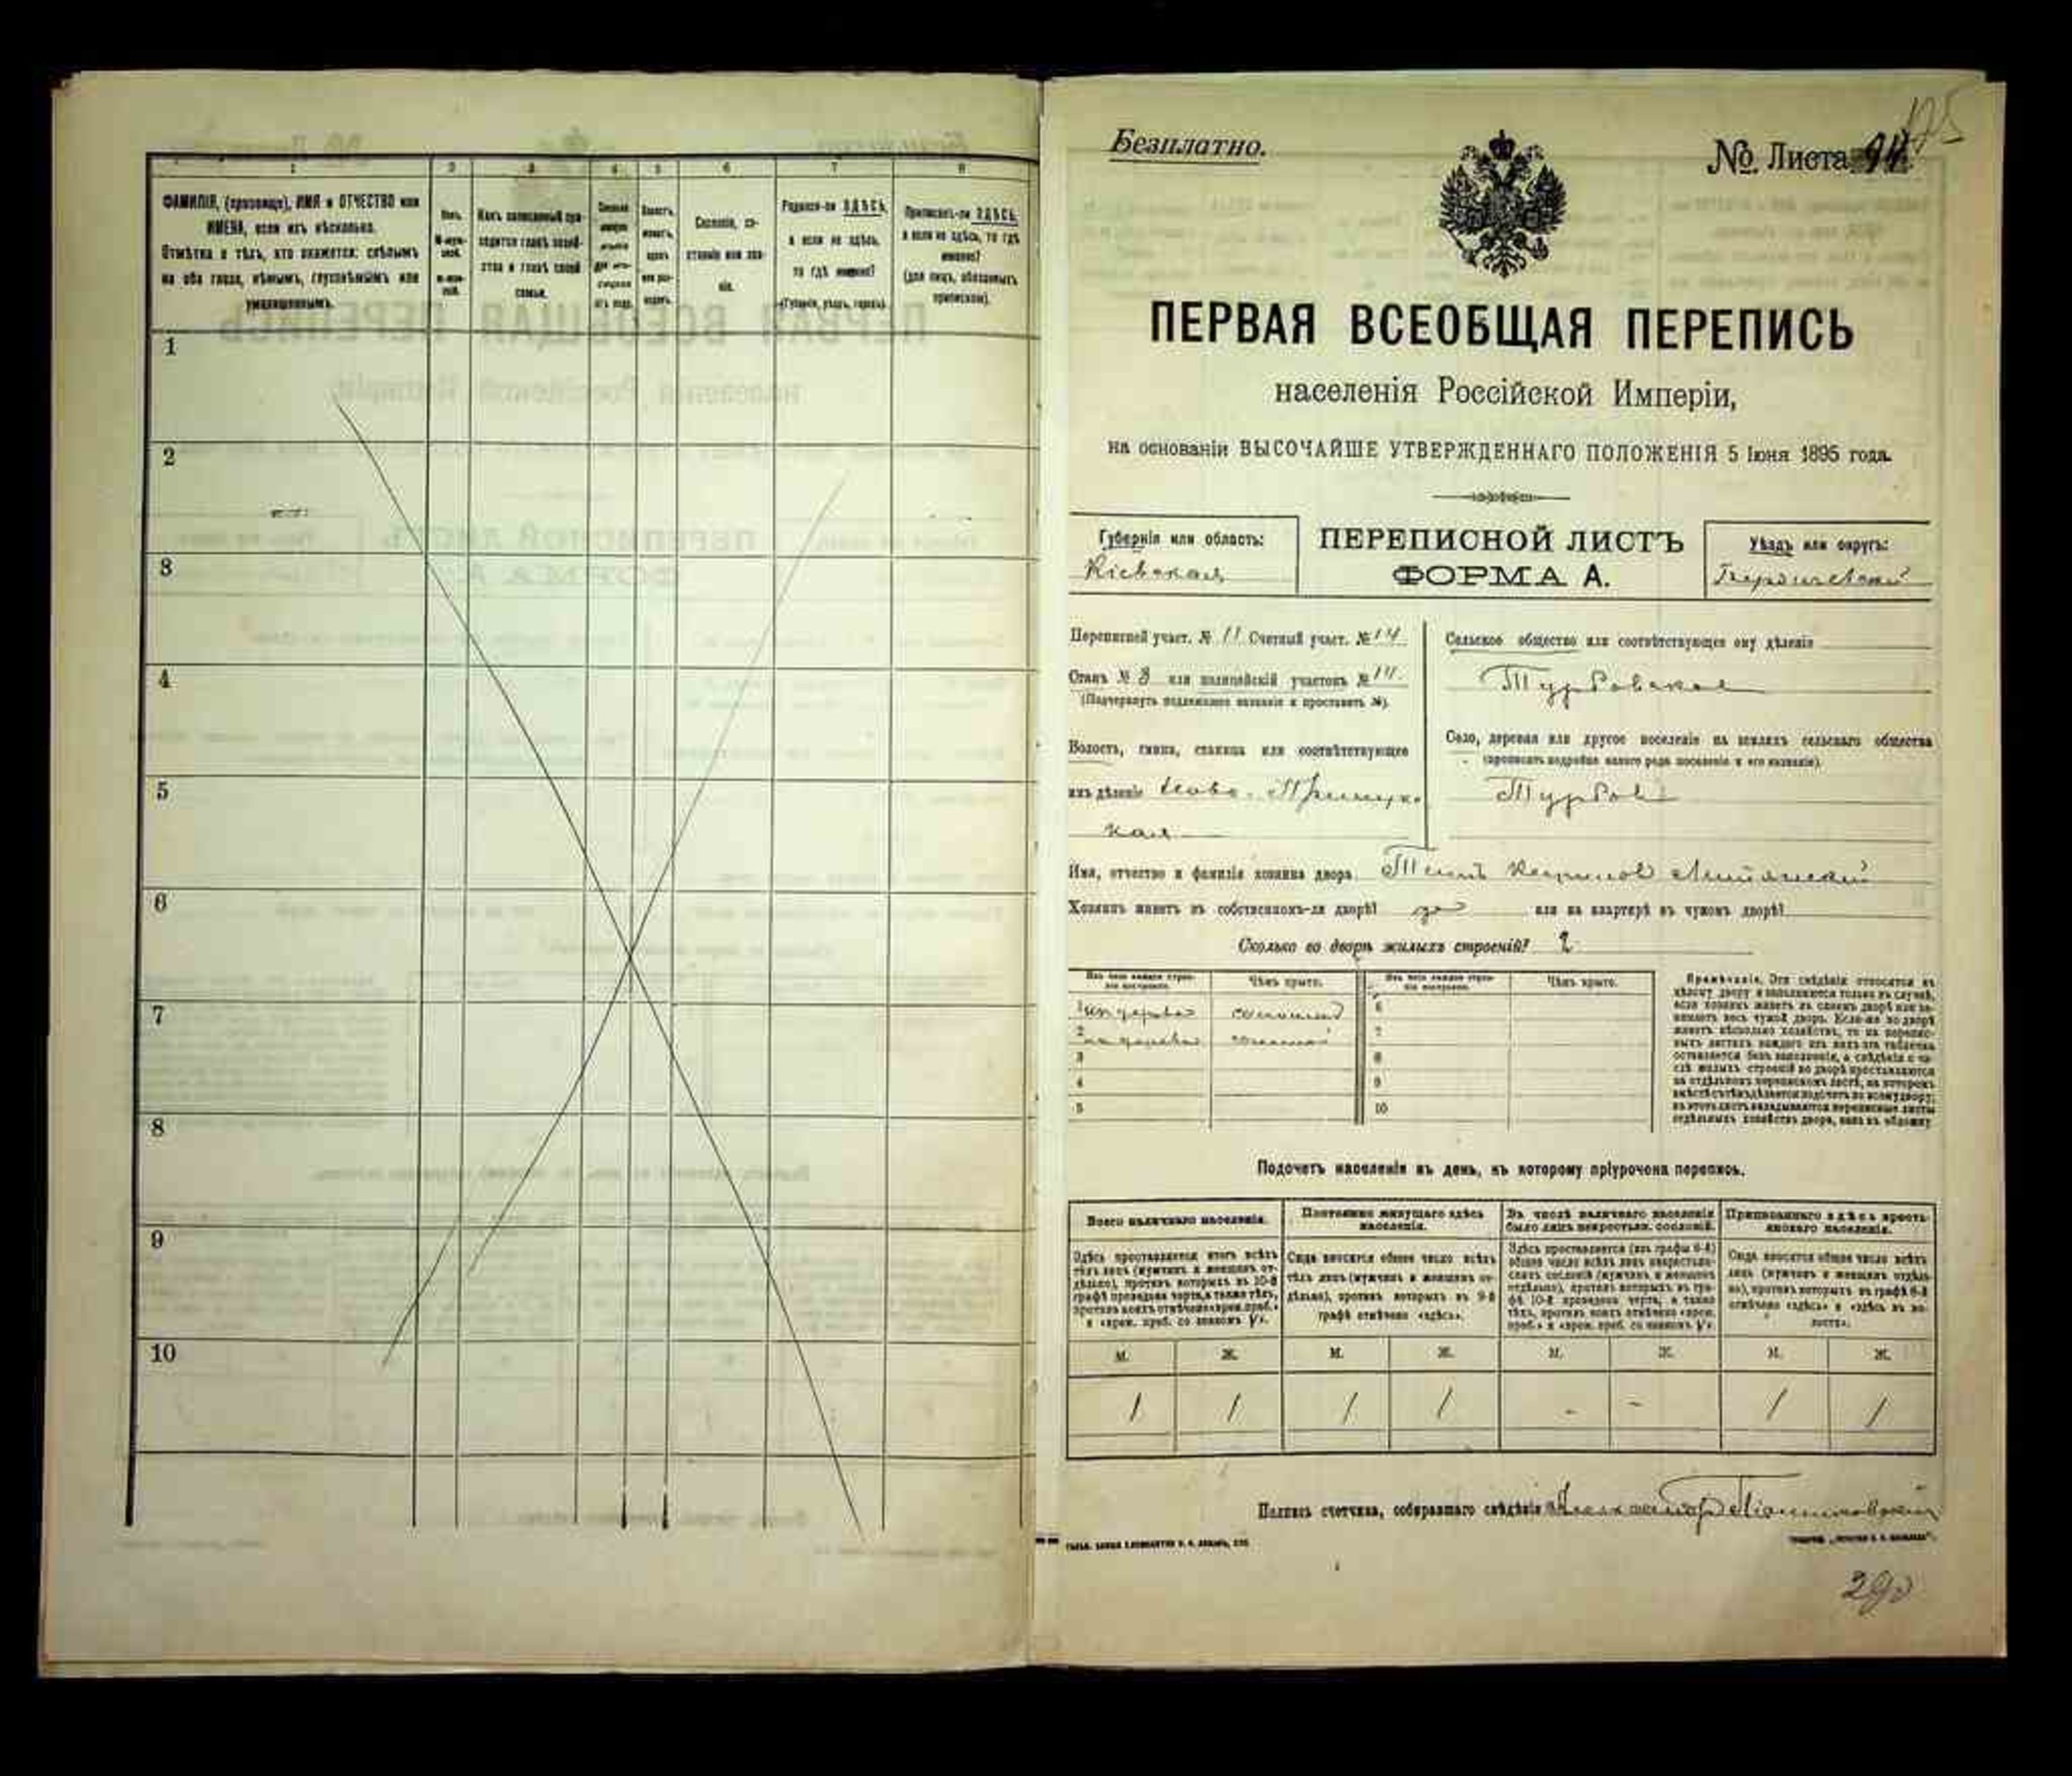 1 2 3 4 5 6 7 8
ФАМИЛІЯ, (прозвище), ИМЯ и ОТЧЕСТВО или
ИМЕНА, если ихъ нѣсколько.
Отмѣтка о тѣхъ, кто окажется: слѣпымъ
на оба глаза, нѣмымъ, глухонѣмымъ или
умалишеннымъ.
Родился-ли ЗДѢСЬ,
а если не здѣсь,
то гдѣ именно?
(Губернія, уѣздъ, городъ).
Приписанъ-ли ЗДѢСЬ,
а если не здѣсь, то гдѣ
именно?
(для лицъ, обязанныхъ
припиской).
1
2
3
4
5
6
7
8
9
10
Безплатно.
№ Листа
ПЕРВАЯ ВСЕОБЩАЯ ПЕРЕПИСЬ
населенія Россійской Имперіи,
на основаніи ВЫСОЧАЙШЕ УТВЕРЖДЕННАГО ПОЛОЖЕНІЯ 5 Іюня 1895 года.
Губернія или область:
Кіевская
ПЕРЕПИСНОЙ ЛИСТЪ
ФОРМА А.
Уѣздъ или округъ:
Бердичевскій
Переписной участ. № 11 Счетный участ. № 14
Станъ № 3 или полицейскій участокъ № 14.
(Подчеркнуть подлежащее названіе и проставить №).
Волость, гмина, станица или соотвѣтствующее
имъ дѣленіе Ново-Прилук
кая
Сельское общество или соотвѣтствующее ему дѣленіе
Турбовское
Село, деревня или другое поселеніе на земляхъ сельскаго общества
(прописать подробно какого рода поселеніе и его названіе).
Турбовъ
Имя, отчество и фамилія хозяина двора
Хозяинъ живетъ въ собственномъ-ли дворѣ? да или на квартирѣ въ чужомъ дворѣ?
Сколько во дворѣ жилыхъ строеній? 2
Изъ чего каждое строеніе построено. Чѣмъ крыто. Изъ чего каждое строеніе построено. Чѣмъ крыто.
1 изъ дерева соломой 6
2 изъ дерева соломой 7
3 8
4 9
5 10
Примѣчаніе. Эти свѣдѣнія относятся къ
цѣлому двору и заполняются только въ случаѣ,
если хозяинъ живетъ въ своемъ дворѣ или за-
нимаетъ весь чужой дворъ. Если-же во дворѣ
живетъ нѣсколько хозяйствъ, то на перепис-
ныхъ листахъ каждаго изъ нихъ эта табличка
оставляется безъ заполненія, а свѣдѣнія о чи-
слѣ жилыхъ строеній во дворѣ проставляются
на отдѣльномъ переписномъ листѣ, на которомъ
вмѣстѣ съ тѣмъ дѣлается подсчетъ по всему двору;
въ этотъ листъ вкладываются переписные листы
отдѣльныхъ хозяйствъ двора, какъ въ обложку
Подсчетъ населенія въ день, къ которому пріурочена перепись.
Всего наличнаго населенія.
Здѣсь проставляется итогъ всѣхъ
тѣхъ лицъ (мужчинъ и женщинъ от-
дѣльно), противъ которыхъ въ 10-й
графѣ проведена черта, а также тѣхъ,
противъ коихъ отмѣчено «врем. преб.»
и «врем. преб. со знакомъ V».
Постоянно живущаго здѣсь
населенія.
Сюда вносится общее число всѣхъ
тѣхъ лицъ (мужчинъ и женщинъ от-
дѣльно), противъ которыхъ въ 9-й
графѣ отмѣчено «здѣсь».
Въ числѣ наличнаго населенія
было лицъ некрестьян. сословій.
Здѣсь проставляется (изъ графы 6-й)
общее число всѣхъ лицъ некрестьян-
скихъ сословій (мужчинъ и женщинъ
отдѣльно), противъ которыхъ въ гра-
фѣ 10-й проведена черта, а также
тѣхъ, противъ коихъ отмѣчено «врем.
преб.» и «врем. преб. со знакомъ V».
Приписаннаго здѣсь кресть-
янскаго населенія.
Сюда вносится общее число всѣхъ
лицъ (мужчинъ и женщинъ отдѣль-
но), противъ которыхъ въ графѣ 8-й
отмѣчено «здѣсь» и «здѣсь въ во-
лости».
М. Ж. М. Ж. М. Ж. М. Ж.
1 1 1 1 - - 1 1
Подпись счетчика, собиравшаго свѣдѣнія Александр
290